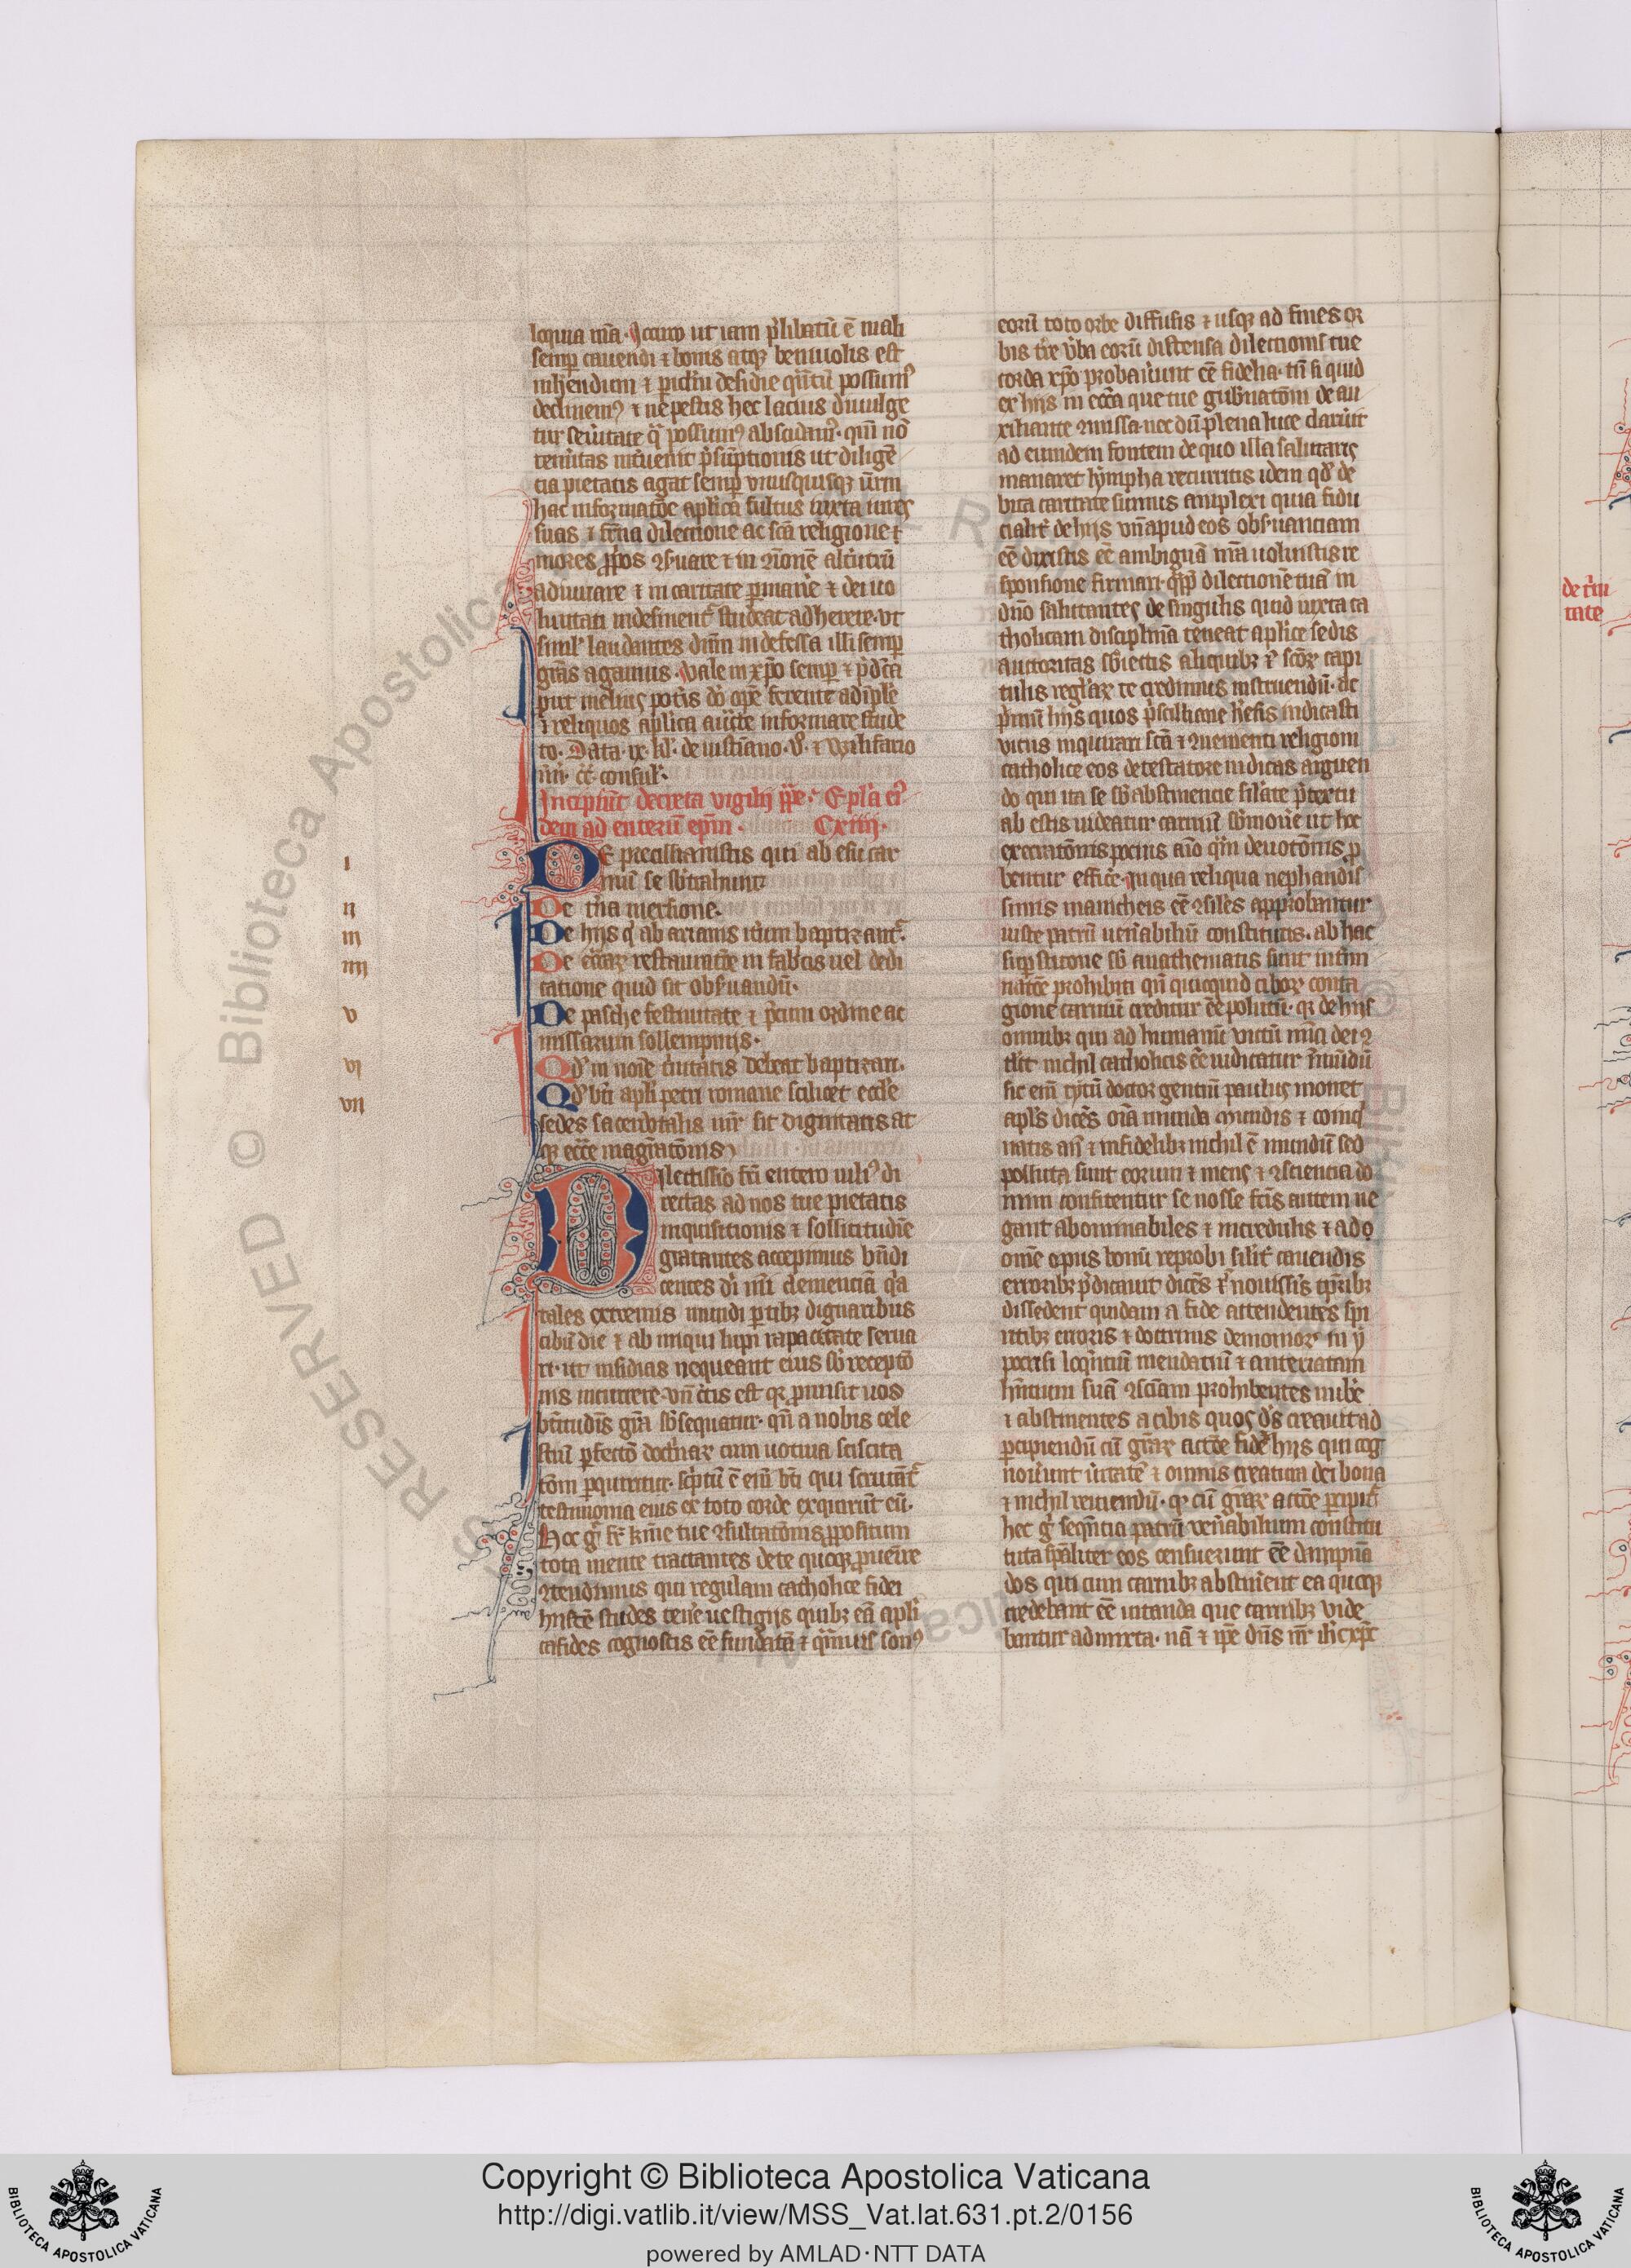 loquia nr̄a. Qcirco ut iam p̄libatū ē mali
semp cauendi ⁊ bonis atqꝫ beniuolis est
declinem⁹ ⁊ ne pestis hec lacius diuulge
tur seuitate q̄ possum⁹ abscidam⁹. qm̄ nō
temitas inuenit p̄sūptionis ut diligē
cia pietatis agat semp vnusquisqꝫ ur̄m
hac informatōe aplica fultus iuxta uires
suas ⁊ fr̄na dilectione ac scā religione ⁊
adiuuare ⁊ in caritate pmane ⁊ dei uo
luntati indesinent̄ studeat adherere. vt
simil laudantes dnm indefessa illi semp
grās agamus. Vale in xp̄o semp ⁊ p̄dc̄a
⁊ reliquos aplica aucte informare stude
to. Data. ix. kl. de iustiano. v. ⁊ Vzilisario
uii. cc̄. consul.
Incipiūt decreta vigilij pp̄e. Epl'a ei⁹
dem ad euterū ep̄m. Cxiiij.
i
DE precillianistis qui ab esu car
niū se sb̄trahunt
ii
De t̄na mersione.
iii
De hijs q̄ ab arianis it̄um baptizant̄.
iiij
De ecc̄ar restauratōe in fabr̄cis uel dedi
catione quid sit obs̄uandū.
v
De pasche festiuitate ⁊ p̄cum ordine ac
missarum sollempnijs.
vi
Qd̄ in noīe t̄nitatis debeat baptizari.
vii
Qd̄ bt̄i apl̄i petri romane scilicet eccl̄e
sedes sacerdotalis nr̄ sit dignitatis at
qꝫ ecc̄e magr̄atōnis
Dilectissīo fr̄i eutero uili⁹ di
rectas ad nos tue pietatis
inquisitionis ⁊ sollicitudīe
gratantes accepimus bn̄di
centes dī nr̄i clemenciā q̄a
tales extremis mundi ptibꝫ dignaribus
cibū die ⁊ ab iniqui lupi rapacitate serua
ri. ut insidias nequeant eius sb̄ receptō
nis incurrere. vn̄ c̄tis est qꝫ pmisit uos
bt̄itudīs gr̄a sb̄sequatur. qn̄ a nobis cele
stiū pfectō doct̄nar cum uotiua sciscita
tōm pquiritur. sc̄ptū ē eiū bt̄i qui scrutāt̄
testimonia eius ex toto corde exquirūt eū.
Hoc g̊ fr̄ km̄e tue ꝯsultatōnis propositum
tota mente tractantes de te quoqꝫ puenire
ꝯtendimus qui regulam catholice fidei
hn̄stē studes tene uestigijs quibꝫ eā apl̄i
ca sides cognoscis eē fundatā ⁊ q̄muis son⁹
eorū toto orbe diffusis ⁊ usqꝫ ad fines or
bis tr̄e v̄ba eorū distensa dilectionis tue
corda xp̄o probauunt eē fidelia. tn̄ si quid
ex hijs in ecc̄a que tue gub̄natōni deo au
xiliante ꝯmissa nec dū plena luce claruit
ad eumdem fontem de quo illa salutaris
manaret lympha recurritis idem qd̄ de
bita caritate sumus amplexi quia fidu
cialit̄ de hijs vn̄ apud eos obs̄uanciam
eē dixistis eē ambiguā nr̄a uoluistis re
sponsione firmari. q̄pp̄ dilectionē tuā in
dn̄o salutantes de singulis quid iuxta ca
tholicam disciplinā teneat aplice sedis
auctoritas sb̄iectis aliquibꝫ ⁊ scōꝝ capi
tulis reglar te credimus instruendū. ac
p̄mū hijs quos p̄scilliane h̄esis indicasti
vicijs inquinari scā ⁊ ꝯuementi religioni
catholice eos detestatōe iudicas arguen
do qui ita se sb̄ abstinencie silate p̄textu
ab escis uideatur carniū sb̄moue ut hoc
execratōnis pocius aīo q̄m deuotōnis p
bentur effice. In qua reliqua nephandis
simis manicheis eē ꝯsiles approbantur
iuste patrū uen̄abiliū constitutis. ab hac
sup sticone sb̄ anathematis sunt intmi
natōe prohibiti qn̄ quicquid cibor conta
gione carniū creditur eē polutū. qꝫ de hijs
omnibꝫ qui ad humanū uictū nr̄a dei ꝯ
tlit nichil catholicis eē iudicatur īmūdū
sic em̄ tytū doctor gentiū paulus monet
apl̄s dicēs oīa munda mundis ⁊ coinq̄
natis aū ⁊ infidelibꝫ nichil ē mundū sed
polluta sunt eorum ⁊ mens ⁊ ꝯsciencia do
minū confitentur se nosse fc̄is autem ne
gant abominabiles ⁊ increduli ⁊ ad o
om̄e opus bonū reprobi silit̄ cauendis
erroribꝫ p̄dicauit dicēs ī nouissīs tp̄ribꝫ
discedent quidam a fide attendentes sp̄i
ritibꝫ erroris ⁊ doctrinis demonior in y
pocrisi loq̄ntiū mendatiū ⁊ cauteriatam
hn̄tium suā ꝯsciam prohibentes nube
⁊ abstinentes a cibis quos ds̄ creauit ad
pcipiendū cū gr̄ar actōe fidel hijs qui cog
nouunt ūitatē ⁊ omnis creatura dei bona
⁊ nichil reiciendū. qꝫ cū gr̄ar actōe pcipit̄
hec g̊ seq̄ntia patrū ven̄abilium constitu
tuta sp̄aliter eos censuerunt eē dampnā
dos qui cum carnibꝫ abstinent ea quoqꝫ
credebant eē uitanda que carnibꝫ vide
bantur admixta. nā ⁊ ip̄e dn̄s nr̄ ih̄c xp̄c
de t̄ni
tate
Copyright © Biblioteca Apostolica Vaticana
http://digi.vatlib.it/view/MSS_Vat.lat.631.pt.2/0156
powered by AMLAD·NTT DATA
BIBLIOTECA APOSTOLICA VATICANA
BIBLIOTECA APOSTOLICA VATICANA